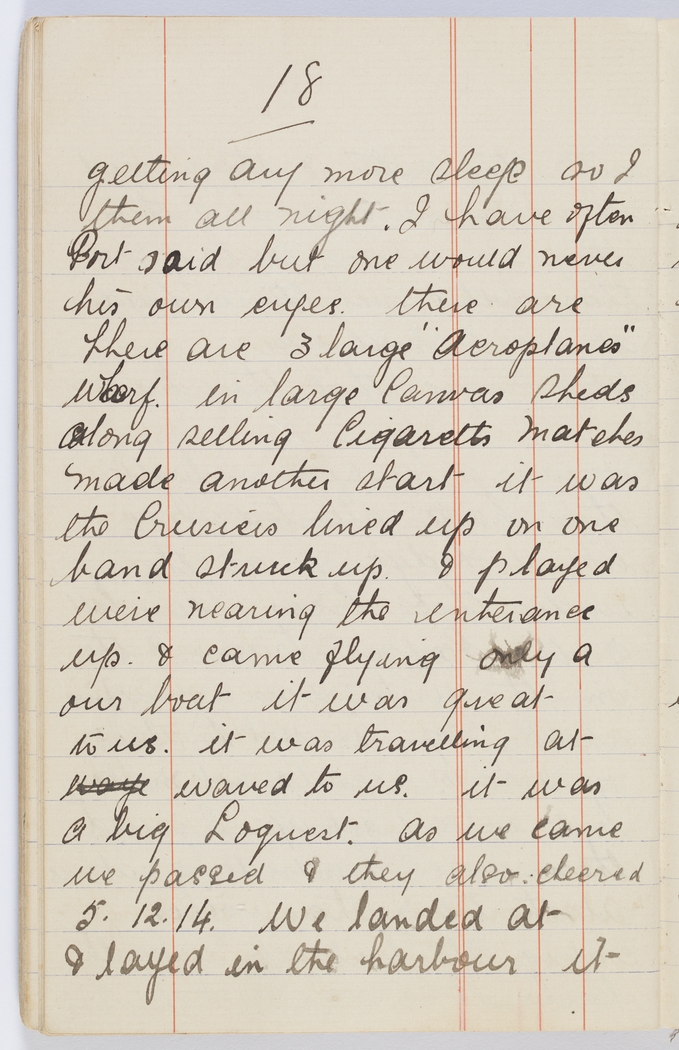 18
getting any more sleep so I
them all night. I have often
Port said but one would never
his own eyes. there are
there are 3 large "Aeroplanes"
Wharf. in large Canvas Sheds
along selling Cigaretts Matches
made another start it was
the Crusiers lined up on one
band struck up. & played
were nearing the enterance
up. & came flying only a
our boat it was great
to us. it was travelling at
waved to us. it was
a big Loquest. as we came
we passed & they also cheered
5. 12. 14. We landed at
& layed in the harbour it